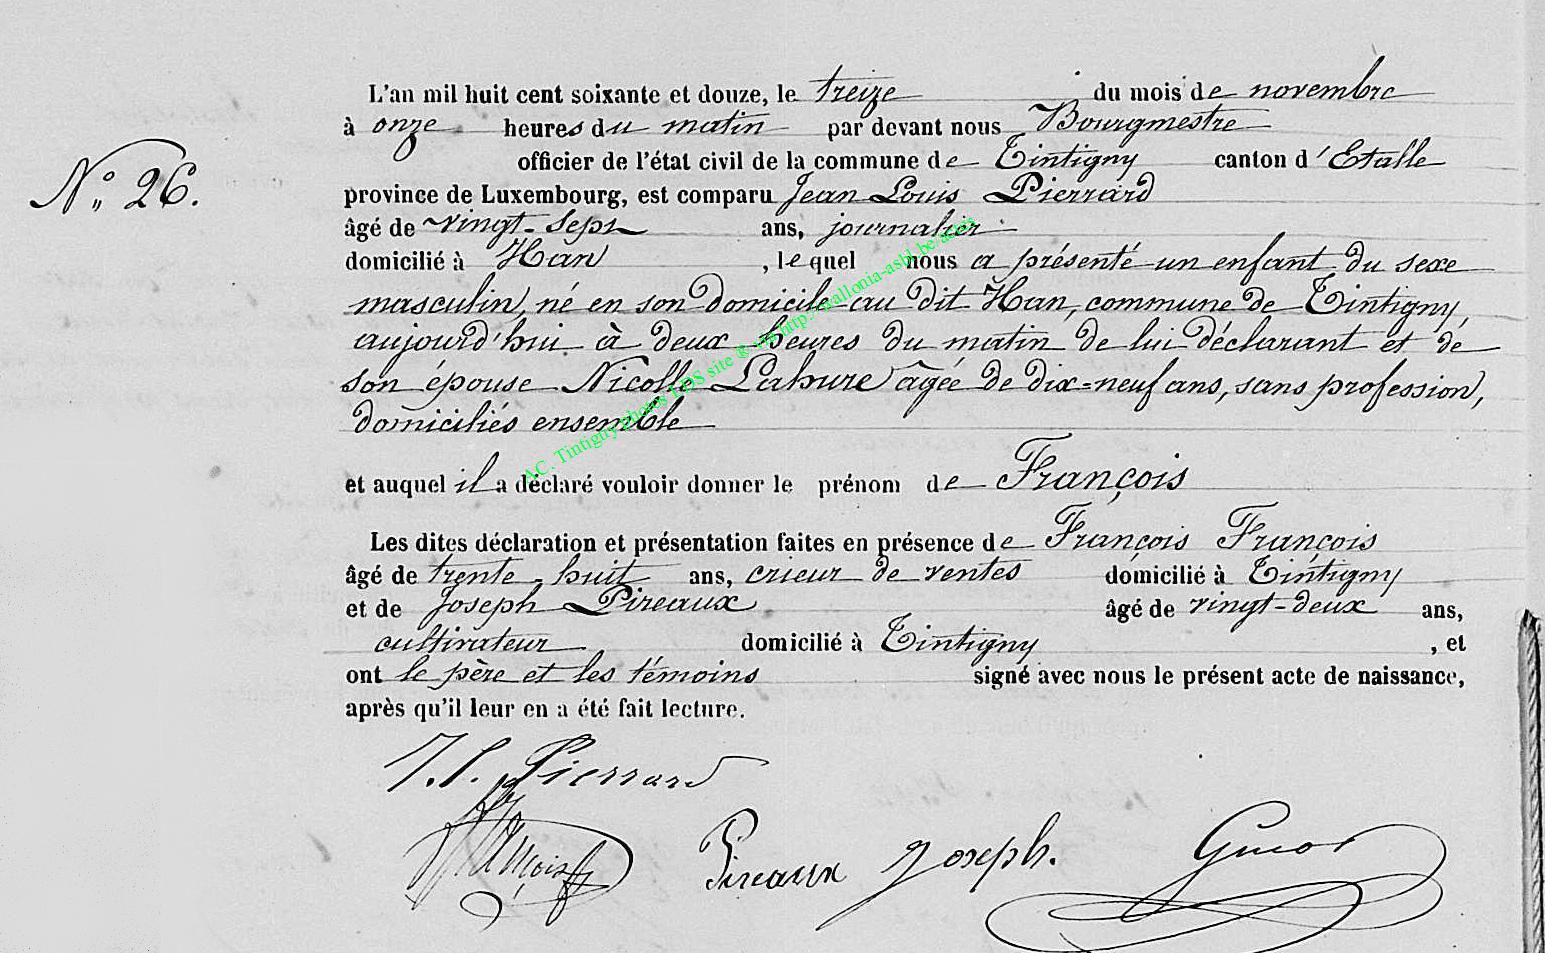 L'an mil huit cent soixante et douze, le treize du mois de novembre
à onze heures du matin par devant nous Bourgmestre
officier de l'état civil de la commune de Tintigny canton d'Etalle
N° 26.
province de Luxembourg, est comparu Jean Louis Pierrard
âgé de vingt-sept ans, journalier
domicilié à Han, lequel nous a présenté un enfant du sexe
masculin, né en son domicile au dit Han, commune de Tintigny,
aujourd'hui à deux heures du matin de lui déclarant et de
son épouse Nicolle Lahure âgée de dix=neuf ans, sans profession,
domiciliés ensemble
et auquel il a déclaré vouloir donner le prénom de François
Les dites déclaration et présentation faites en présence de François François
âgé de trente-huit ans, crieur de ventes domicilié à Tintigny
et de Joseph Pireaux âgé de vingt-deux ans,
cultivateur domicilié à Tintigny, et
ont le père et les témoins signé avec nous le présent acte de naissance,
après qu'il leur en a été fait lecture.
J. L. Pierrard
François
Pireaux Joseph.
A.C. Tintigny photos LDS site ® via http://wallonia-asbl.be/actes